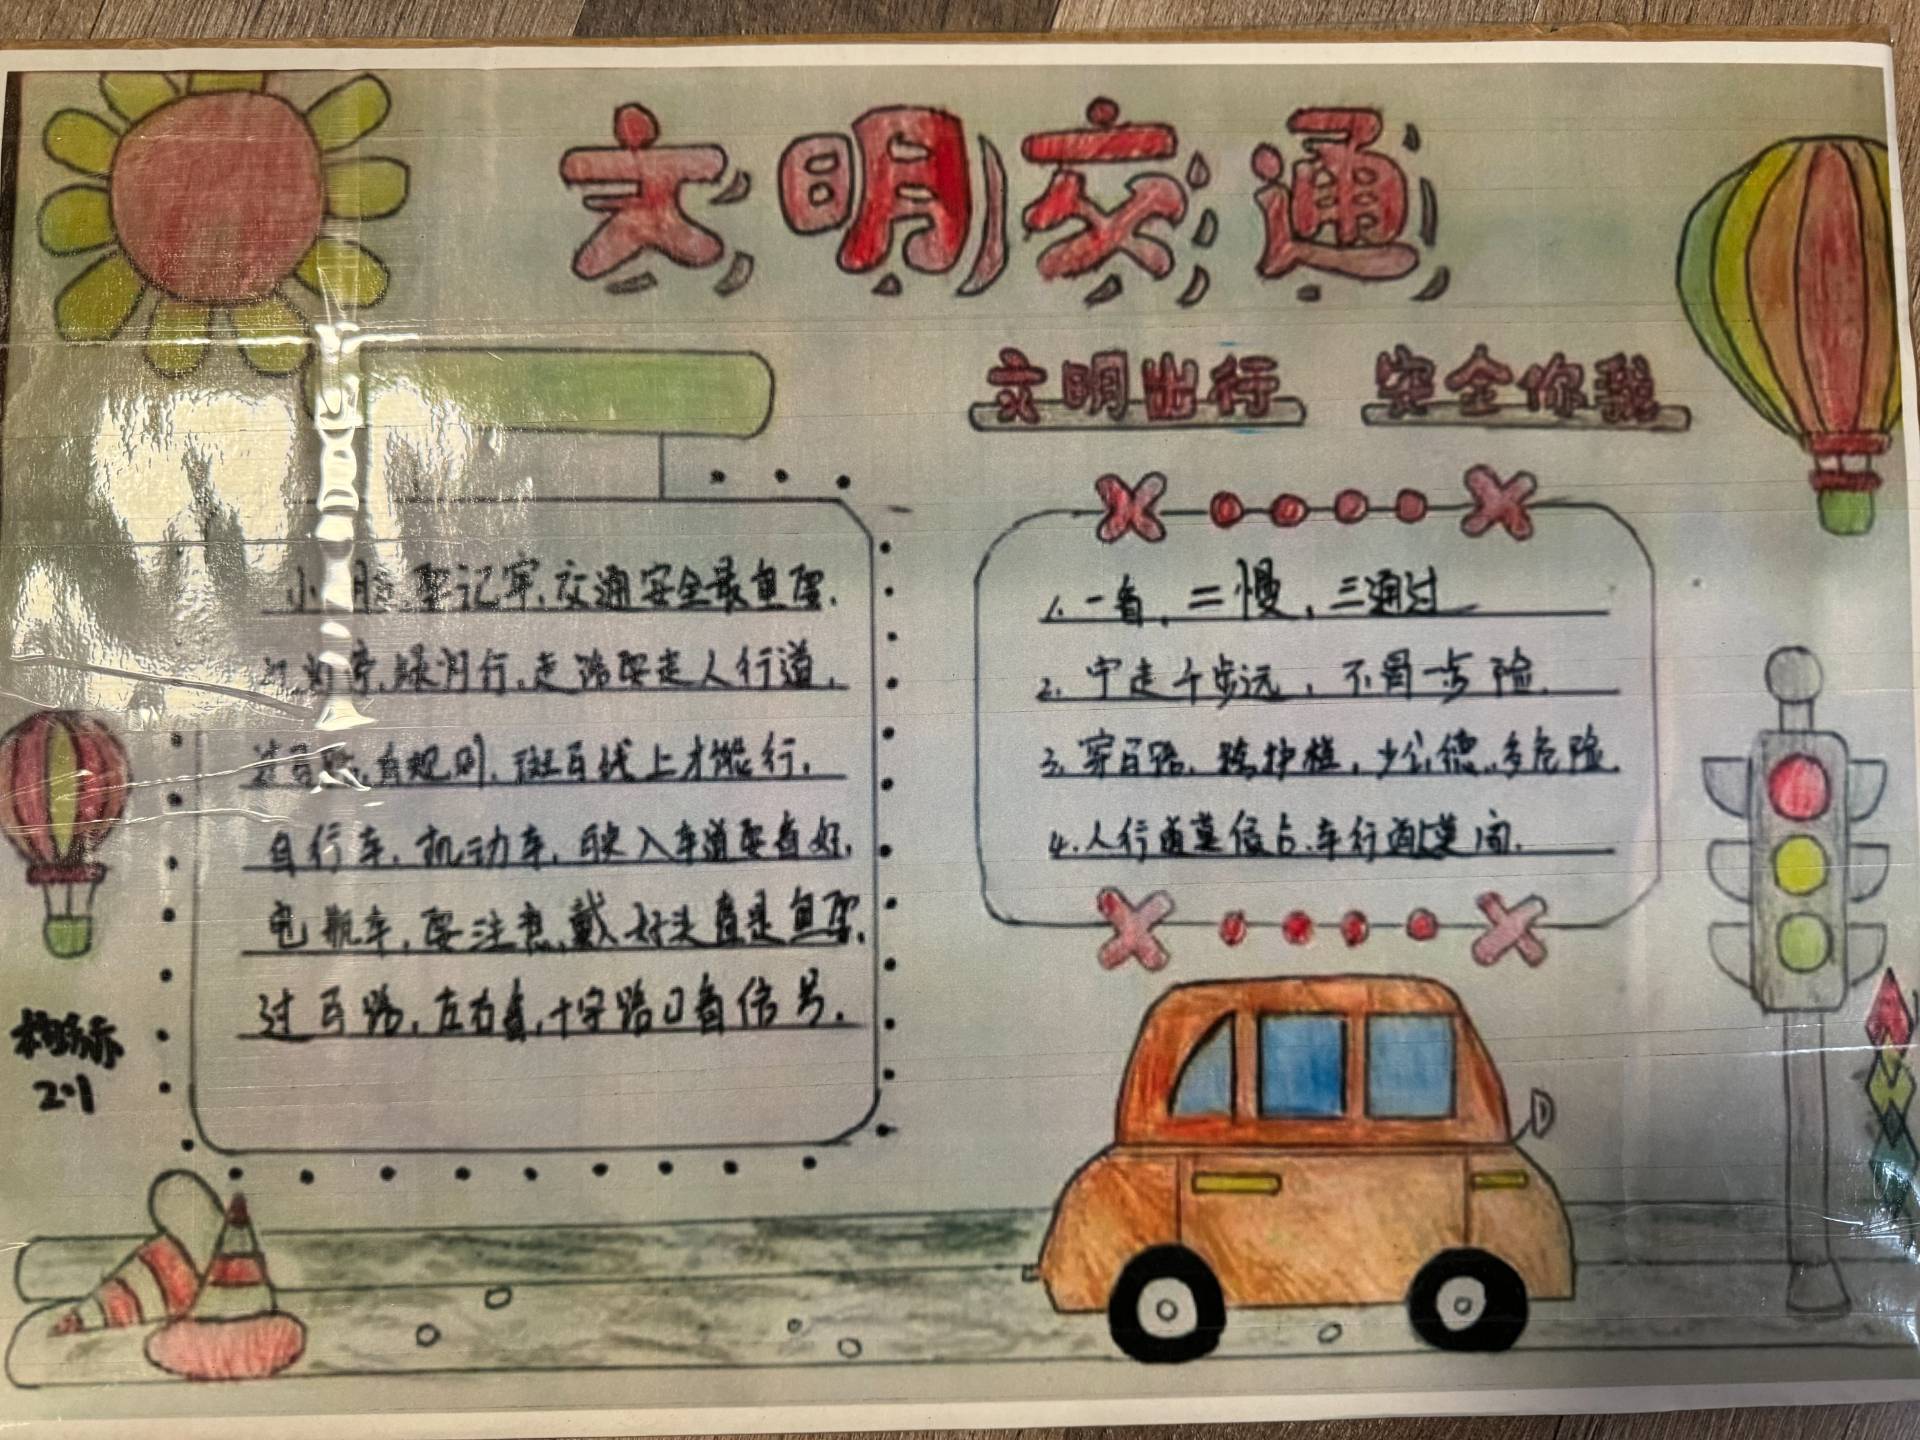 文明交通
文明出行 安全你我
小朋 要记牢,交通安全最重要.
灯停,绿灯行,走路要走人行道.
规则,斑马线上才能行.
自行车,机动车,驶入车道要看好.
电瓶车,要注意,戴好头盔是重要.
过马路,左右看,十字路口看信号.
1.一看,二慢,三通过
2.宁走千步远,不冒一步险.
3.穿马路,跨护栏,少公德,多危险.
4.人行道莫侵占,车行道莫闯.
2.1